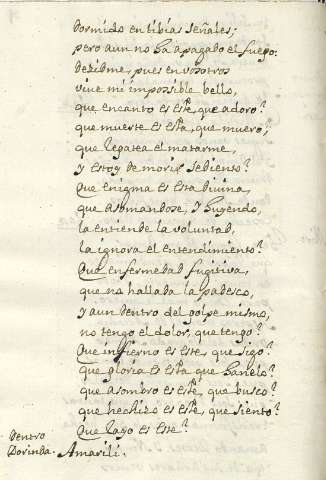 dormido en tibias señales;
pero aun no ha apagado el fuego.
dezidme, pues en vosotros
vive mi impossible bello,
que encanto es este, que adoro?
que muerte es esta, que muero,
que regatea el matarme,
y estoy de morir sediento?
Que enigma es esta divina,
que asomandose, y huyendo,
la entiende la voluntad,
la ignora el entendimiento?
Que enfermedad fugitiva,
que no hallada la padesco,
y aun dentro del golpe mismo,
no tengo el dolor, que tengo?
Que infierno es este, que sigo?
que gloria es esta que
que asombro es este, que busco?
que hechizo es este, que siento?
Que lago es este?
Dentro
Dorinda. Amarili.